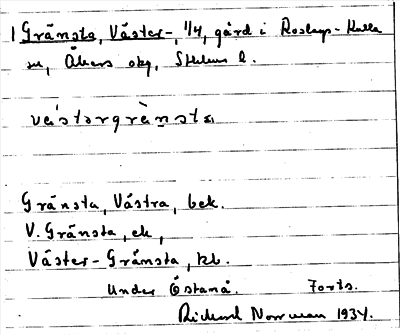 1 Gränsta, Väster-, 1/4, gård i Roslags-Kulla
sn, Åkers skg, Sthlms l.
vä́stərgrä̀nsta
Gränsta, Västra, bek.
V. Gränsta, ek,
Väster-Gränsta, kl.
Under Östanå. Forts.
Rickard Norrman 1934.